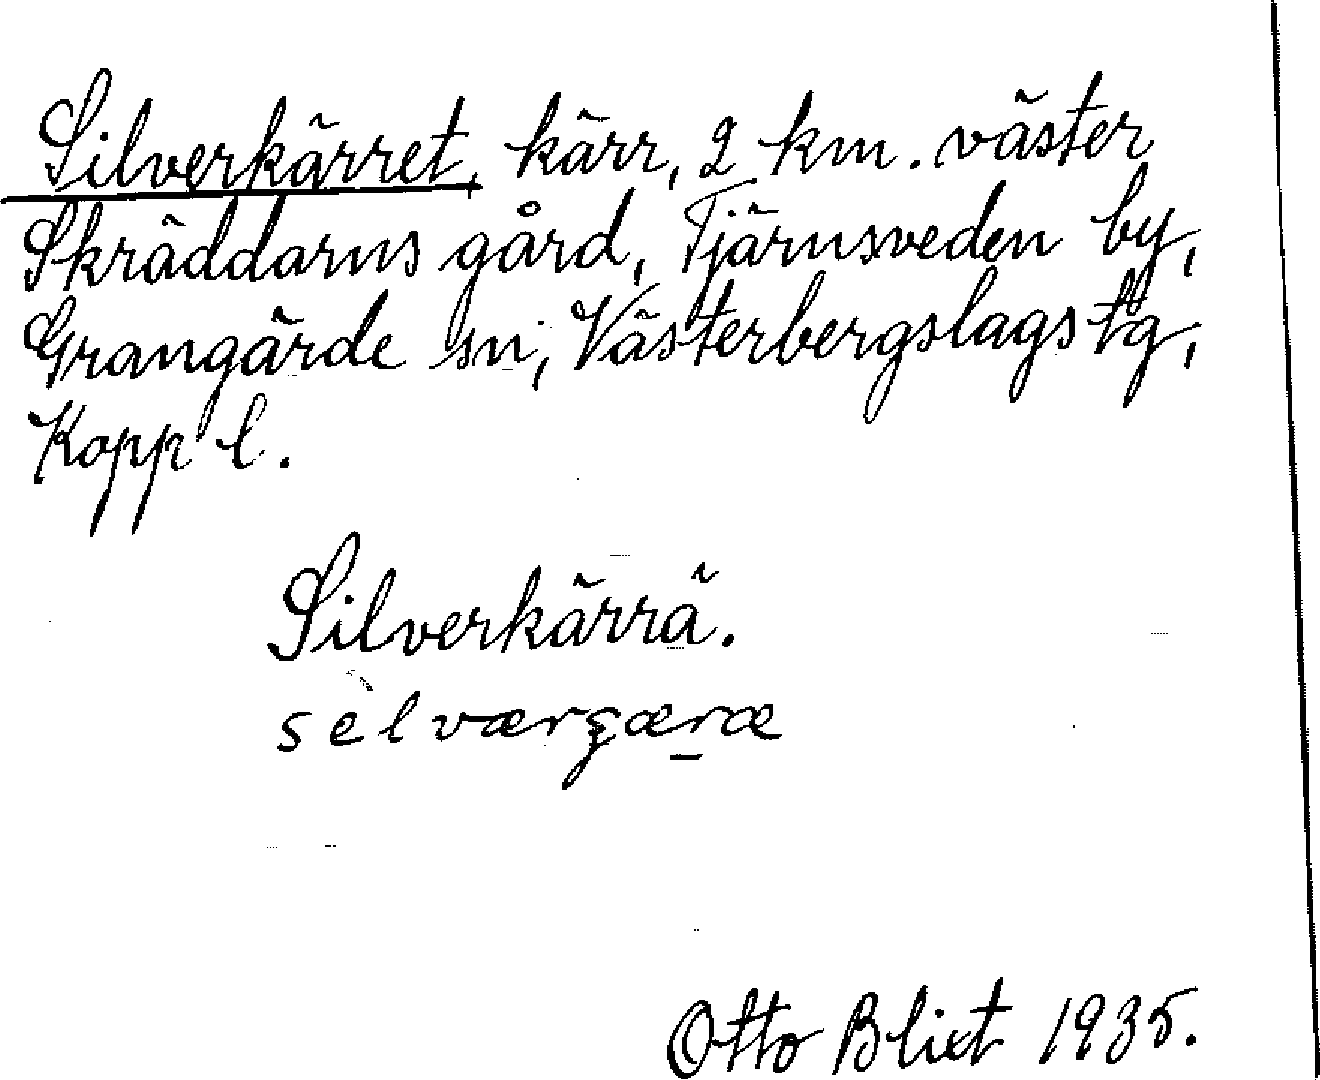 Silverkärret, kärr, 2 km. väster
Skräddarns gård, Tjärnsveden by,
Grangärde sn, Västerbergslags tg,
Kopp l.
Silverkärrä.
sèlværgæræ
Otto Blixt 1935.